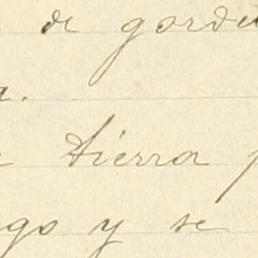 de gordu
a.
tierra p
go y se